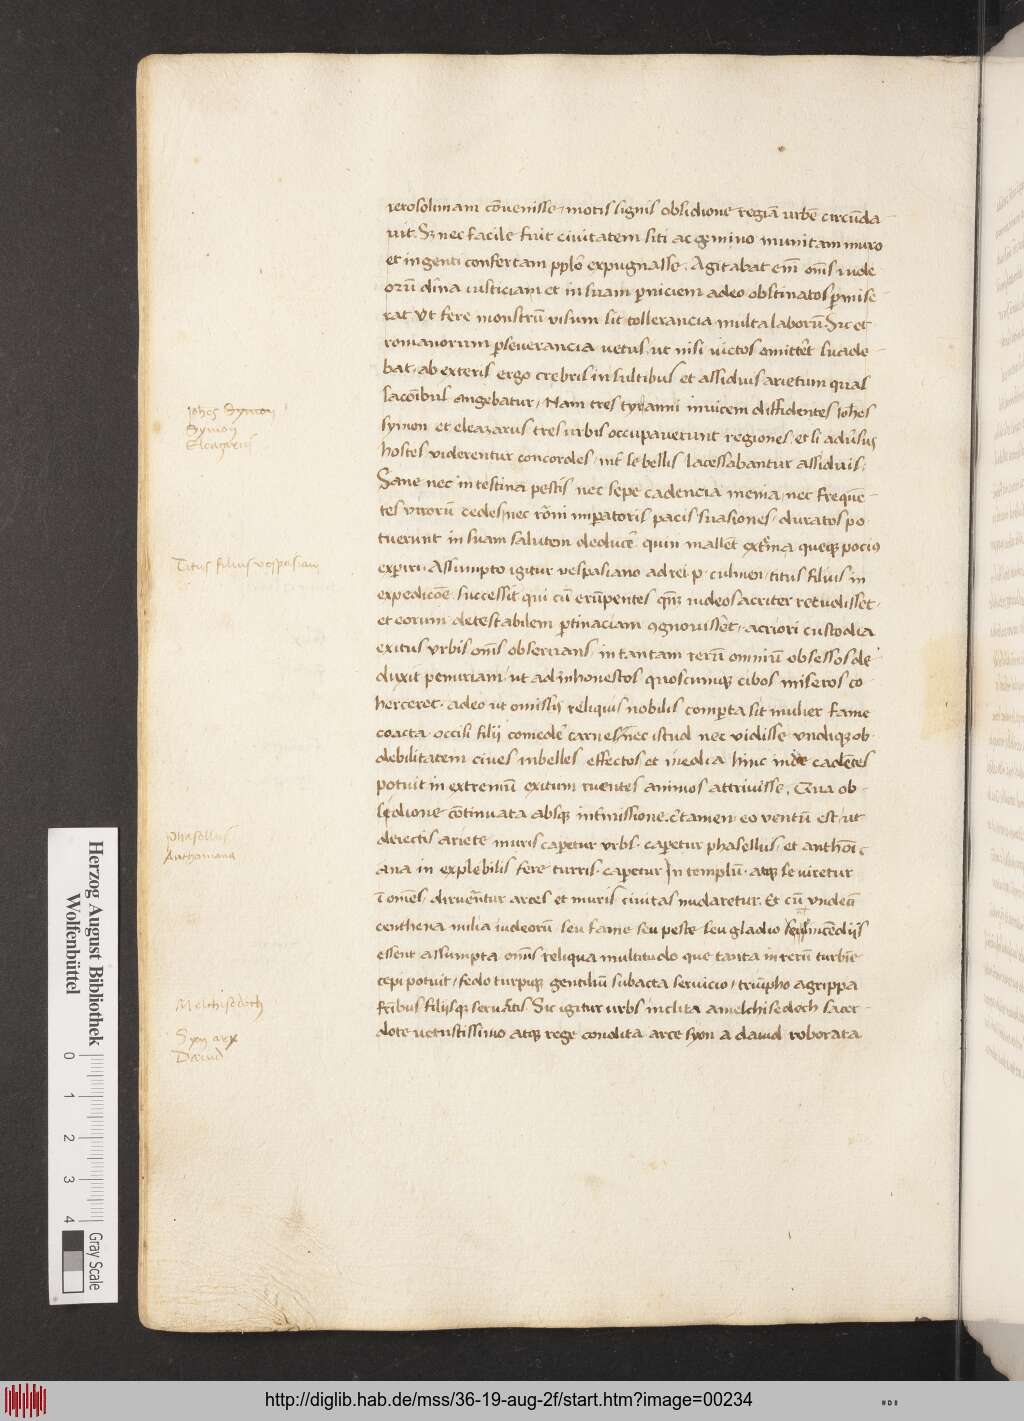 ierosolimam cōvenisse, motis signis obsidione regiā urbē circūda
vit. Sz nec facile fuit civitatem siti ac gemino munitam muro
et ingenti confertam pplō expugnasse. Agitabat em̄ om̄s iude
orū dīna iusticiam et in suam pniciem adeo obstinatos pmise
rat ut fere monstrū visum sit tollerancia multa laborū. Sic et
romanorum pseverancia vetus, ut nisi victos omittet̄ suade
bat, ab exteris ergo crebris insultibus et assiduis arietum quas
sacōibus angebatur, Nam tres tyranni invicem diffidentes Ioh̄es
symon et eleazarus tres urbis occupaverunt regiones, et si adūsus
hostes viderentur concordes, int̄ se bellis lacessabantur assiduis,
Sane nec intestina pestis nec sepe cadencia menia, nec freque
tes virorū cedes, nec rōni impatoris pacis suasiones, duratos po
tuerunt in suam salutem deducē. quin mallēt extima queqz pocius
expiri. Assumpto igitur vespasiano ad rei p. culmen, titus filius in
expedicōe successit qui cū erūpentes qm̄z iudeos acriter retudisset,
et eorum detestabilem ptinaciam 9gnovissēt, acriori custodia
exitus urbis om̄s observans, in tantam rerū omniū obsessos de
duxit penuriam, ut ad inhonestos quoscumqz cibos miseros co
herceret. adeo ut omissis reliquis nobilis compta sit mulier fame
coacta occisi filij comedē carnes, nec istud nec vidisse undiqz ob
debilitatem cives inbelles effectos et inedia hinc inde cadētes
potuit in extremū exitum ruentes animos attrivisse. Qua ob
sidione cōtinuata absqz intmissione. c̄tamen eo ventū est, ut
deiectis ariete muris capetur urbs. capetur phasellus, et anthoī
ana in explebilis fere turris. capetur In templū. atqz se viretur
ī omēs. diruen̄tur arces et muris civitas nudaretur. Et cū undecī
centhena milia iudeorū seu fame seu peste seu gladio seu incēdijs
essent assumpta om̄s reliqua multitudo que tanta in terū turbie
cepi potuit, fedo turpiqz gentiliū subacta servicio, triūpho agrippa
fr̄ibus filijsqz servatis. Sic igitur urbs inclita a melchisedech sacer
dote vetustissimo atqz rege condita arce syon a david roborata
Ioh̄es Symon
Symon
Eleazarus
Titus filius vespasian
phasellus
Anthoniana
Melchisedech
Syon arx
David
Herzog August Bibliothek
Wolfenbüttel
0 1 2 3 4
Gray Scale
http://diglib.hab.de/mss/36-19-aug-2f/start.htm?image=00234